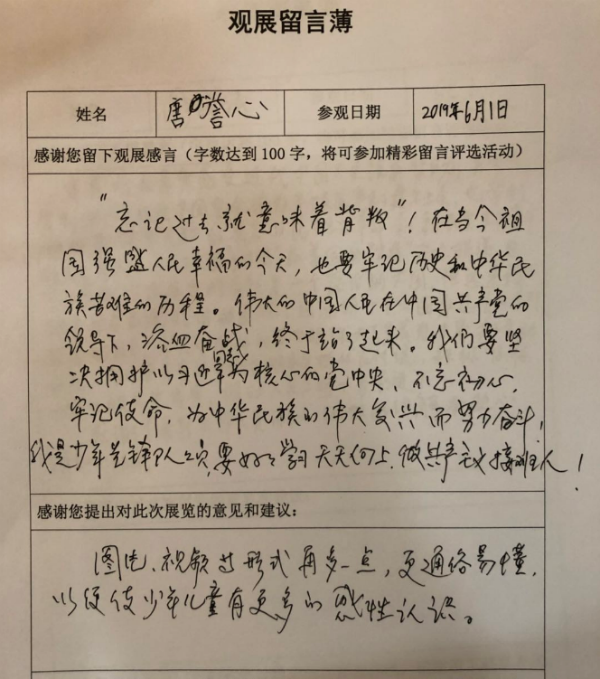 观展留言薄
姓名 唐誉心 参观日期 2019年6月1日
感谢您留下观展感言（字数达到 100 字，将可参加精彩留言评选活动）
“忘记过去就意味着背叛”！在当今祖
国强盛人民幸福的今天，也要牢记历史和中华民
族苦难的历程。伟大的中国人民在中国共产党的
领导下，浴血奋战，终于站了起来。我们要坚
决拥护以习近平同志为核心的党中央、不忘初心，
牢记使命，为中华民族的伟大复兴而努力奋斗，
我是少年先锋队队员，要好好学习天天向上，做共产主义接班人！
感谢您提出对此次展览的意见和建议：
图片、视频等形式再多一点，更通俗易懂，
以便使少年儿童有更多的感性认识。